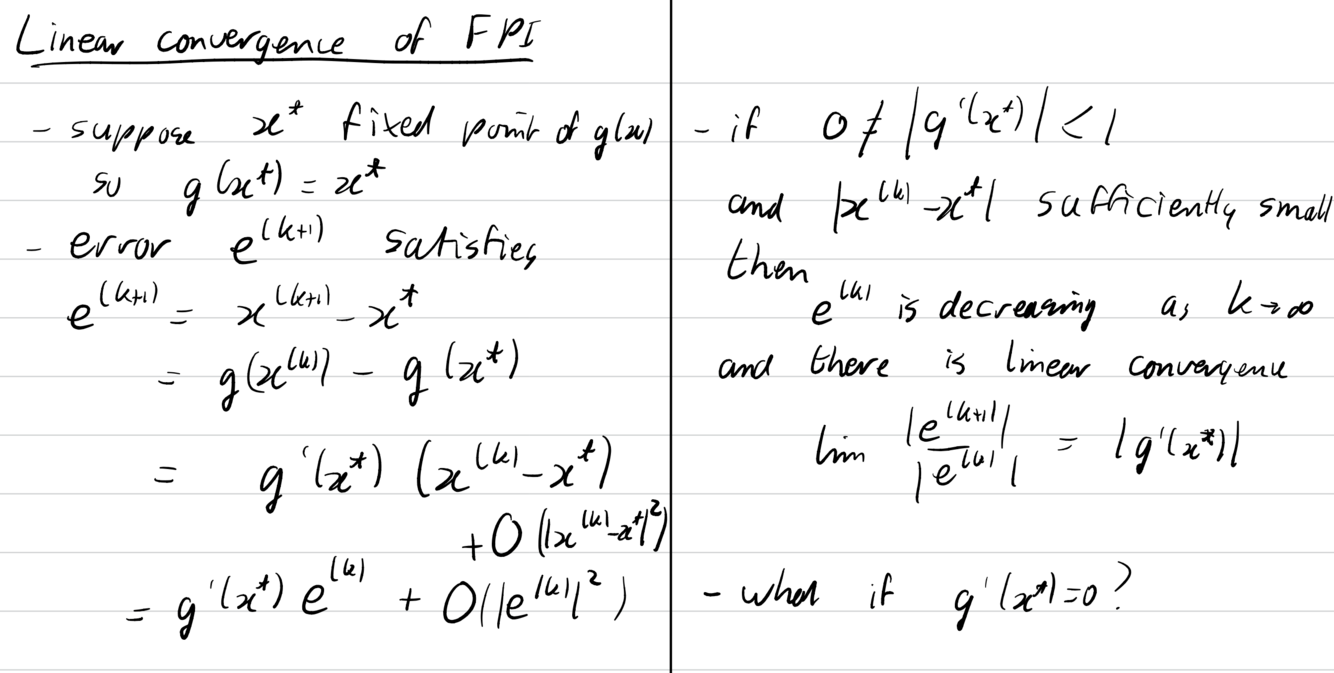 Linear convergence of FPI
- suppose x* fixed point of g(x)
so g(x*) = x*
- error e^(k+1) satisfies
e^(k+1) = x^(k+1) - x*
= g(x^(k)) - g(x*)
= g'(x*) (x^(k) - x*)
+ O(|x^(k) - x*|^2)
= g'(x*) e^(k) + O(|e^(k)|^2)
- if 0 ≠ |g'(x*)| < 1
and |x^(k) - x*| sufficiently small
then
e^(k) is decreasing as k → ∞
and there is linear convergence
lim |e^(k+1)| / |e^(k)| = |g'(x*)|
- what if g'(x*) = 0?